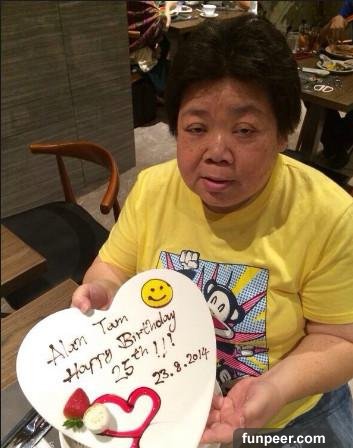 Alan Tam
Happy Birthday
25th!!!
23.8.2014
funpeer.com